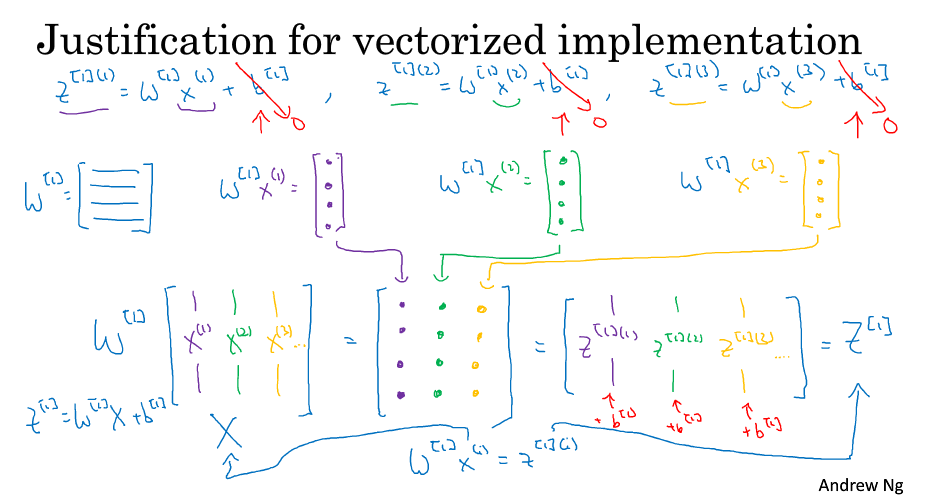 Justification for vectorized implementation
z^[1](1) = W^[1] x^(1) + b^[1] , z^[1](2) = W^[1] x^(2) + b^[1] , z^[1](3) = W^[1] x^(3) + b^[1]
0 0 0
W^[1] = W^[1] x^(1) = W^[1] x^(2) = W^[1] x^(3) =
W^[1] [ x^(1) x^(2) x^(3) ... ] = = [ z^[1](1) z^[1](2) z^[1](3) .... ] = Z^[1]
z^[1] = W^[1] X + b^[1] + b^[1] + b^[1] + b^[1]
X W^[1] x^(i) = z^[1](i)
Andrew Ng